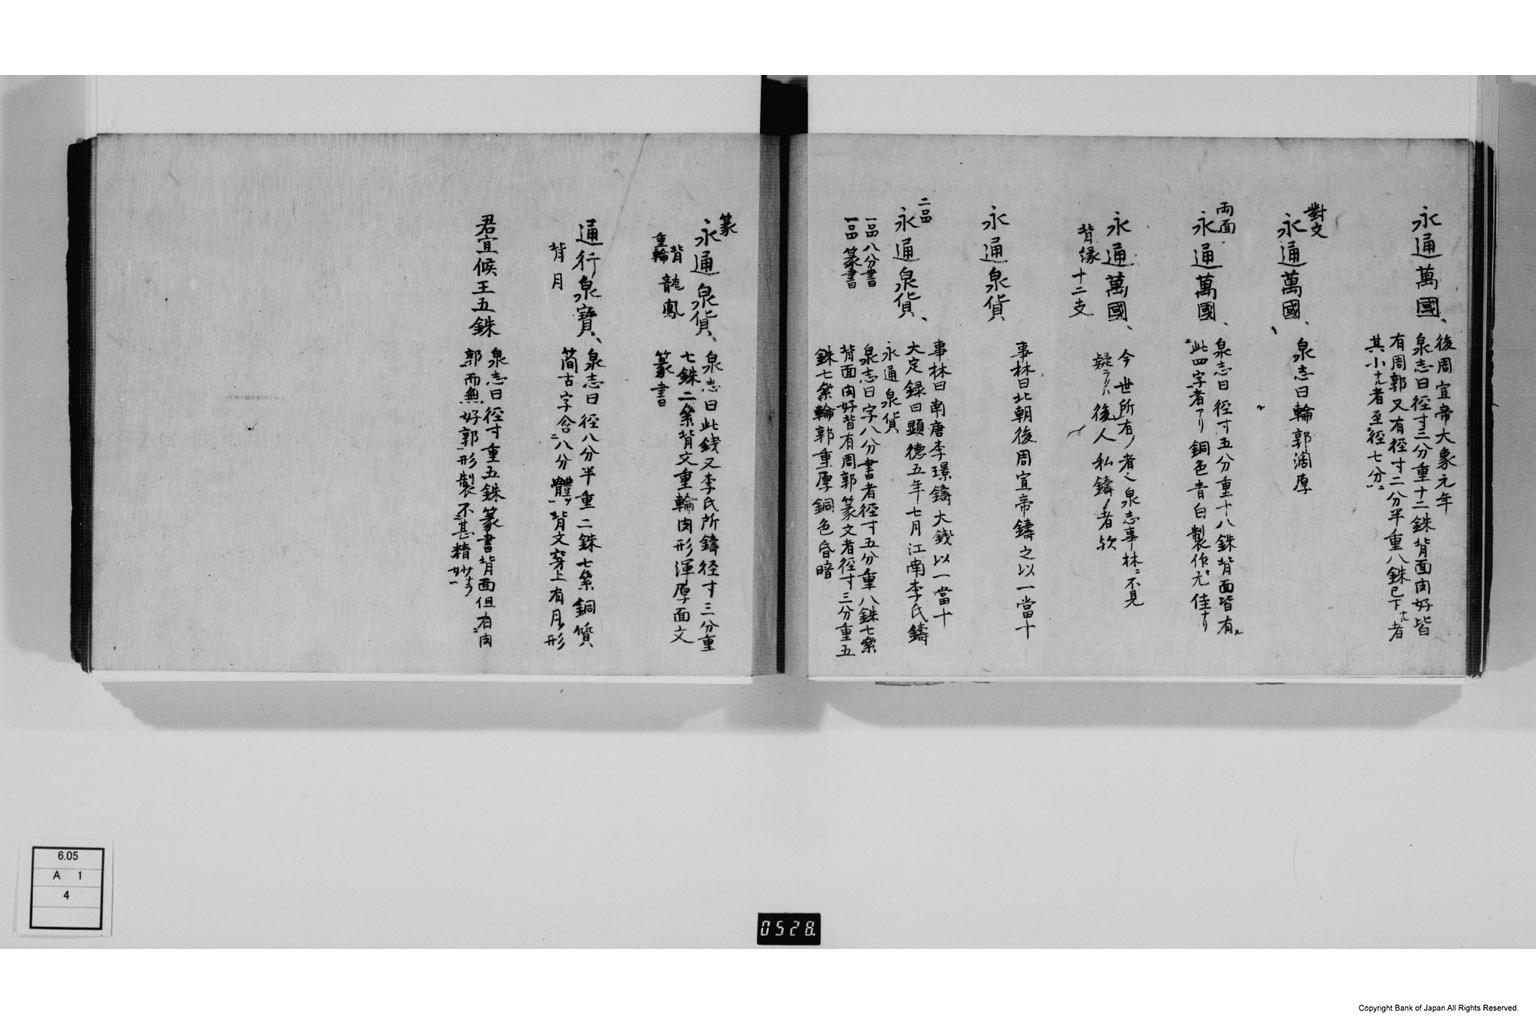 永通萬國、
後周宣帝大象元年
泉志曰径寸三分重十二銖背面肉好皆
有周郭又有径寸二分半重八銖已下ナル者
其小ナル者至径七分ニ
對文
永通萬國、
泉志曰輪郭濶厚
両面
永通萬國、
泉志曰径寸五分重十八銖背面皆有
此四字者アリ銅色青白製作尤佳ナリ
永通萬國、
背縁十二支
今世所有ノ者ハ泉志事林ニ不見
疑ラクハ後人私鑄ノ者欤
永通泉貨
事林曰北朝後周宣帝鑄之以一當十
二品
永通泉貨、
一品八分書
一品篆書
事林曰南唐李璟鑄大錢以一當十
大定録曰顕德五年七月江南李氏鑄
永通泉貨
泉志曰字八分書者径寸五分重八銖七絫
背面肉好皆有周郭篆文者径寸三分重五
銖七絫輪郭重厚銅色昏暗
篆
永通泉貨、
背龍鳳
重輪
泉志曰此錢又李氏所鑄径寸三分重
七銖二絫背文重輪肉形渾厚面文
篆書
通行泉寳、
背月
泉志曰径八分半重二銖七絫銅質
簡古字含八分體ヲ背文穿上有月形
君宜候王五銖
泉志曰径寸重五銖篆書背面但有肉
郭而無好郭形製不甚精妙ナラ
6.05
A 1
4
0528.
Copyright Bank of Japan All Rights Reserved.